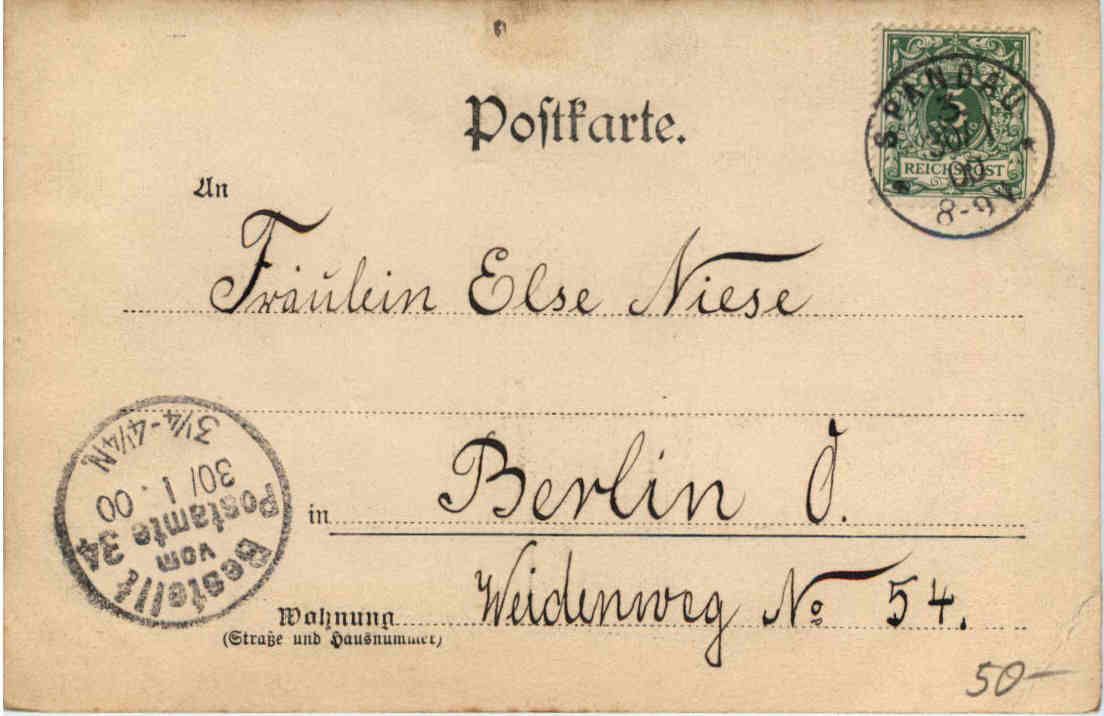 Postkarte.
SPANDAU
3
30/1
00
8-9V
5
REICHSPOST
An
Fräulein Else Niese
3¼-4¼N
30/1.00
Bestellt
vom
Postamte 34
in Berlin O.
Wohnung Weidenweg No 54.
(Straße und Hausnummer)
50-